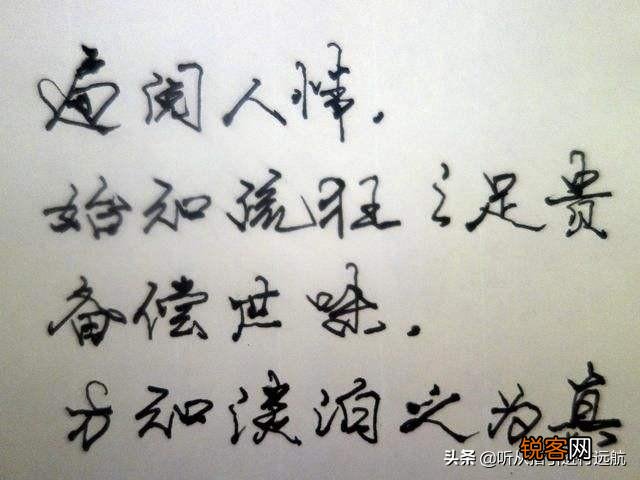 遍阅人情.
始知疏狂之足贵
备偿世味.
方知淡泊之为真
锐客网
头条 @听从指引进行远航